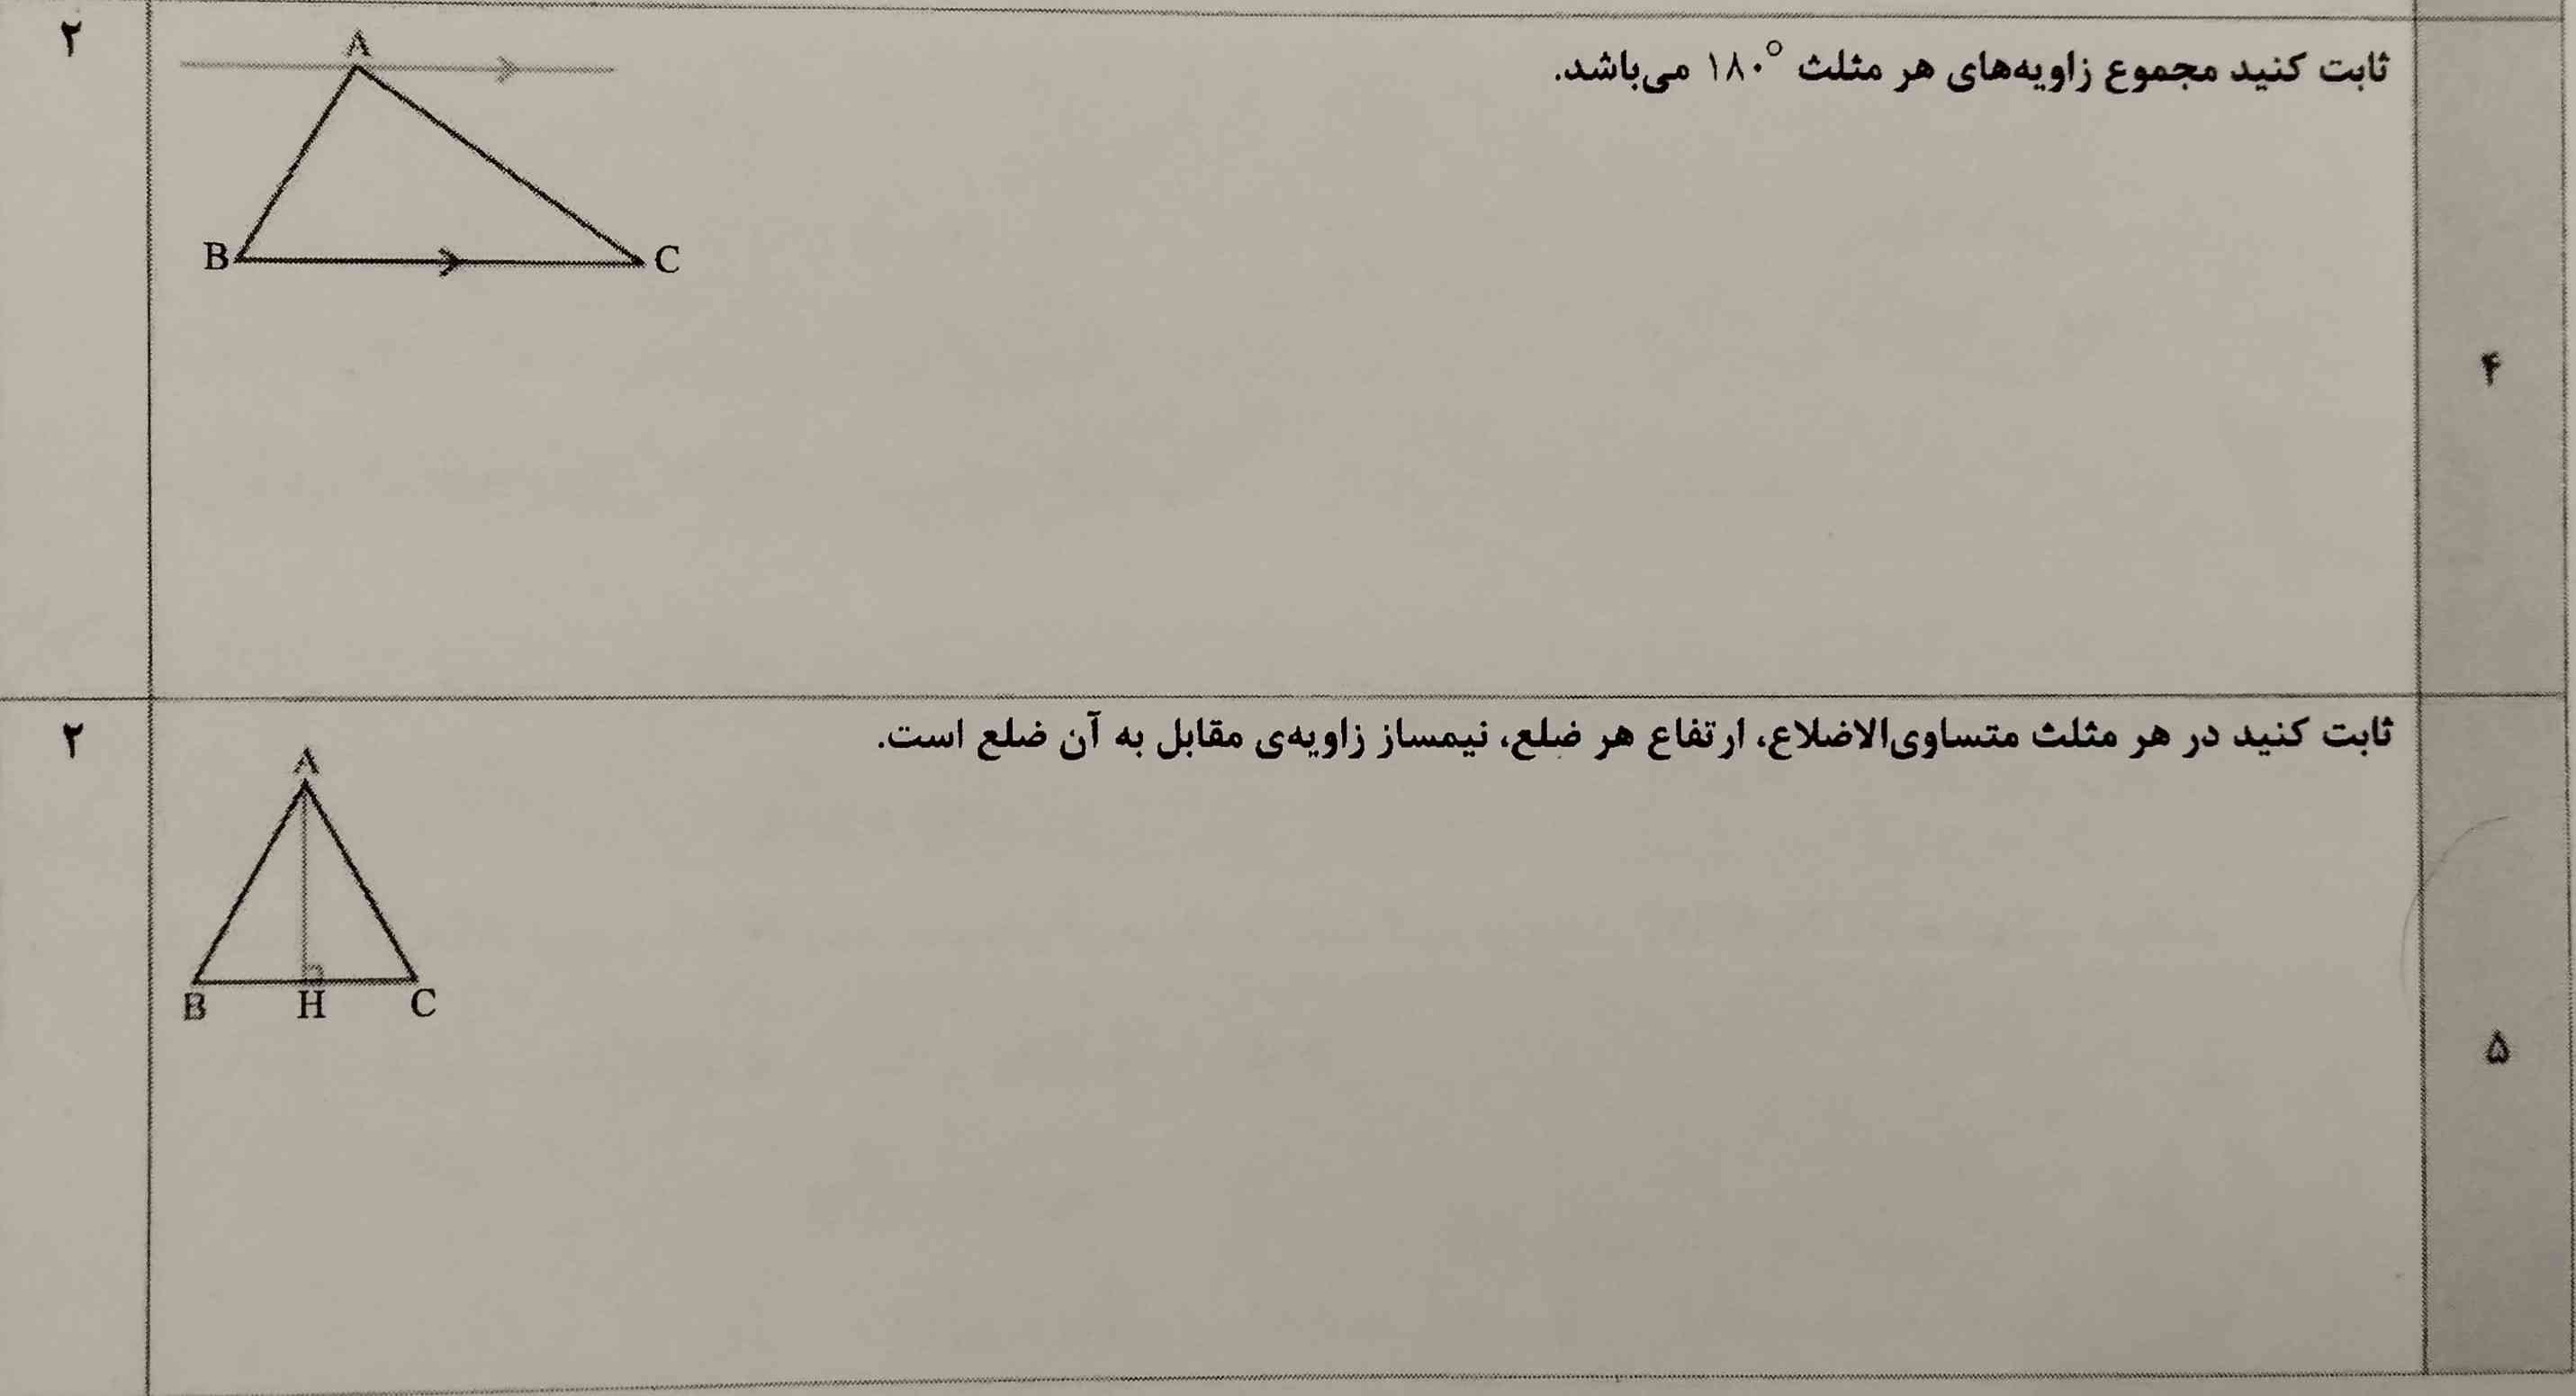 ثابت کنید مجموع زاویه‌های هر مثلث ۱۸۰° می‌باشد.
۲
A
B
C
۴
ثابت کنید در هر مثلث متساوی‌الاضلاع، ارتفاع هر ضلع، نیمساز زاویه‌ی مقابل به آن ضلع است.
۲
A
B H C
۵